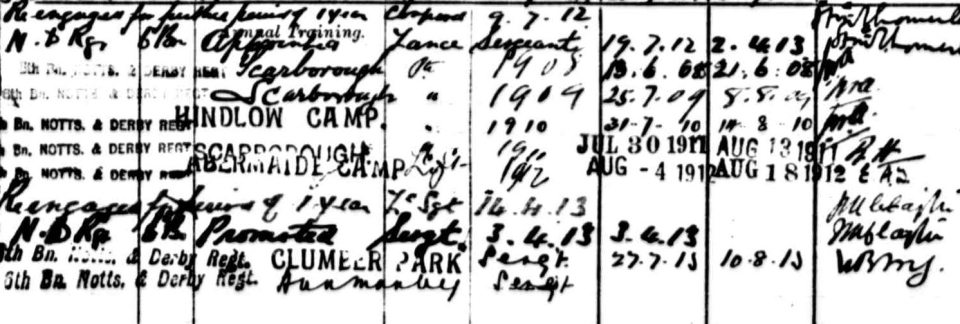 Re-engaged for further period of 1 year Chesterfield 9.7.12
Annual Training.
N. D Rgt 6 Bn Appointed Lance Sergeant 19.7.12 2.4.13
6th Bn. NOTTS. & DERBY REGT Scarborough Pte 1908 13.6.08 21.6.08
6th Bn. NOTTS. & DERBY REGT Scarborough " 1909 25.7.09 8.8.09
h Bn. NOTTS. & DERBY REGT HINDLOW CAMP. " 1910 31-7-10 14-8-10
h Bn. NOTTS. & DERBY REGT SCARBOROUGH. 1911 JUL 30 1911 AUG 13 1911
h Bn. NOTTS. & DERBY REGT ABERMAIDE CAMP 1912 AUG -4 1912 AUG 18 1912
Re engaged for period of 1 year Lc Sgt 14.4.13
N. D Rgt 6 Bn Promoted Sergt. 3.4.13 3.4.13
6th Bn. Notts. & Derby Regt. CLUMBER PARK Sergt 27.7.13 10.8.13
6th Bn. Notts. & Derby Regt. Hunmanby Sergt